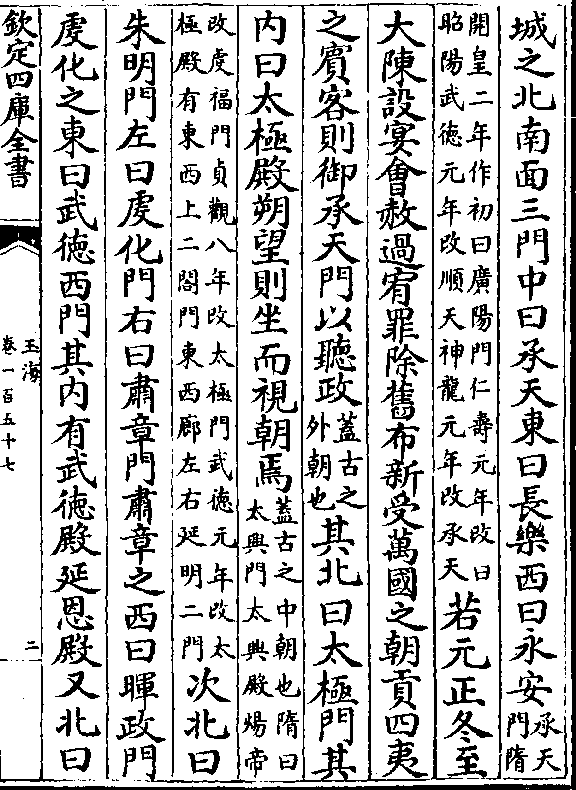 城之北南面三門中曰承天東曰長樂西曰永安承天門隋
開皇二年作初曰廣陽門仁壽元年改曰昭陽武德元年改順天神龍元年改承天若元正冬至
大陳設宴會赦過宥罪除舊布新受萬國之朝貢四夷
之賓客則御承天門以聽政蓋古之外朝也其北曰太極門其
内曰太極殿朔望則坐而視朝焉蓋古之中朝也隋曰太興門太興殿煬帝
改虔福門貞觀八年改太極門武德元年改太極殿有東西上二閤門東西廊左右延明二門次北曰
朱明門左曰虔化門右曰肅章門肅章之西曰暉政門
虔化之東曰武德西門其内有武德殿延恩殿又北曰
欽定四庫全書
玉海
卷一百五十七
二